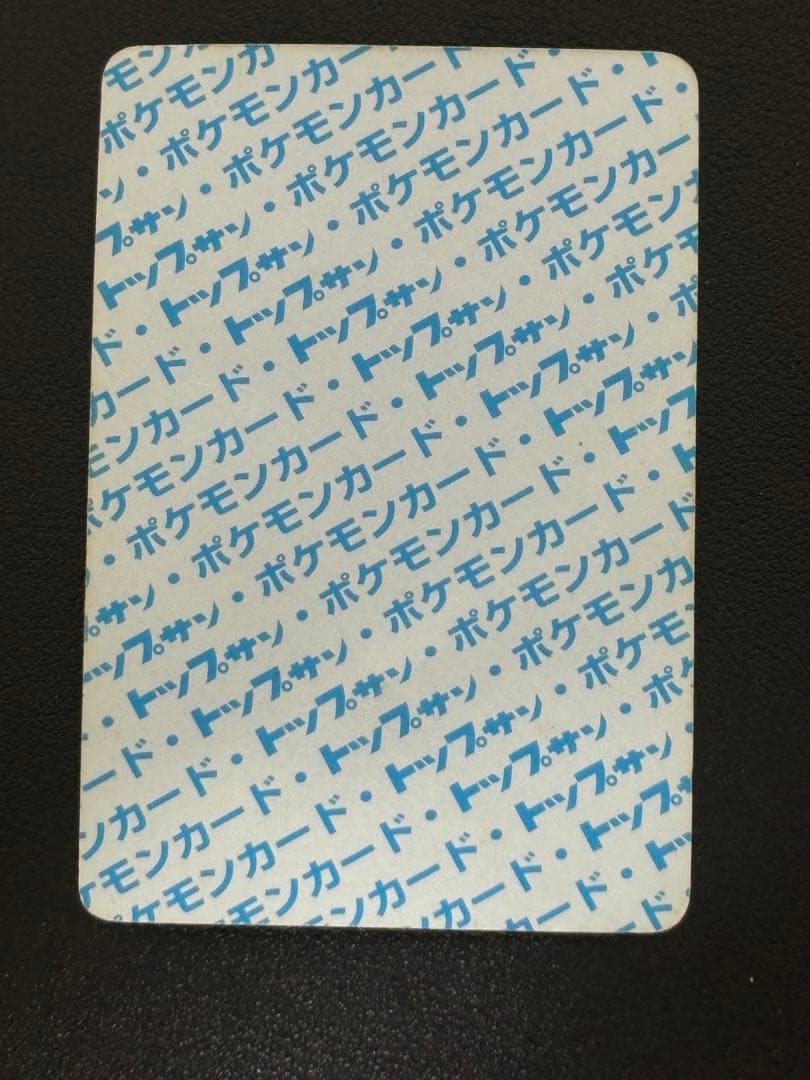 モンカ
ポケモンカ
ン・ポケモンカード
プサン・ポケモンカード
トップサン・ポケモンカード・
ド・トップサン・ポケモンカード・ト
ード・トップサン・ポケモンカード・
カード・トップサン・ポケモンカード
ンカード・トップサン・ポケモンカ
モンカード・トップサン・ポケモ
ポケモンカード・トップサン・ポ
・ポケモンカード・トップサン
ン・ポケモンカード・トップ
プサン・ポケモンカード・ト
トップサン・ポケモンカード・ト
・トップサン・ポケモンカード
ード・トップサン・ポケモンカ
ンカード・トップサン・ポケモ
モンカード・トップサン・ポケ
ケモンカード・トップサン・
モンカード・トップサン
ンカード・トップ
カード・ト
ード